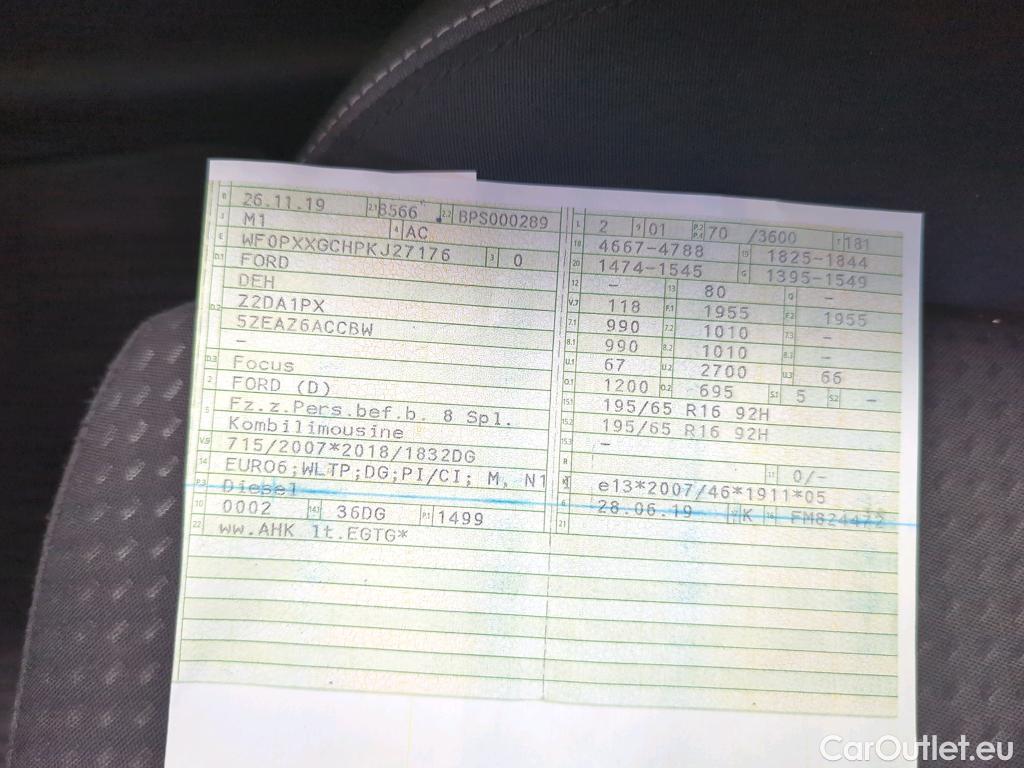 B 26.11.19 2.1 8566 2.2 BPS000289
J M1 4 AC
E WF0PXXGCHPKJ27176 3 0
D.1 FORD
DEH
D.2 Z2DA1PX
5ZEAZ6ACCBW
–
D.3 Focus
2 FORD (D)
5 Fz.z.Pers.bef.b. 8 Spl.
Kombilimousine
V.9 715/2007*2018/1832DG
14 EURO6;WLTP;DG;PI/CI; M, N1
P.3 Diesel
10 0002 14.1 36DG P.1 1499
22 ww.AHK lt.EGTG*
L 2 9 01 P.2 P.4 70 /3600 T 181
18 4667-4788 19 1825-1844
20 1474-1545 G 1395-1549
12 – 13 80 Q –
V.7 118 F.1 1955 F.2 1955
7.1 990 7.2 1010 7.3 –
8.1 990 8.2 1010 8.3 –
U.1 67 U.2 2700 U.3 66
O.1 1200 O.2 695 S.1 5 S.2 –
15.1 195/65 R16 92H
15.2 195/65 R16 92H
15.3 –
R 11 0/–
K e13*2007/46*1911*05
6 28.06.19 17 K 16 FM824472
21
CarOutlet.eu